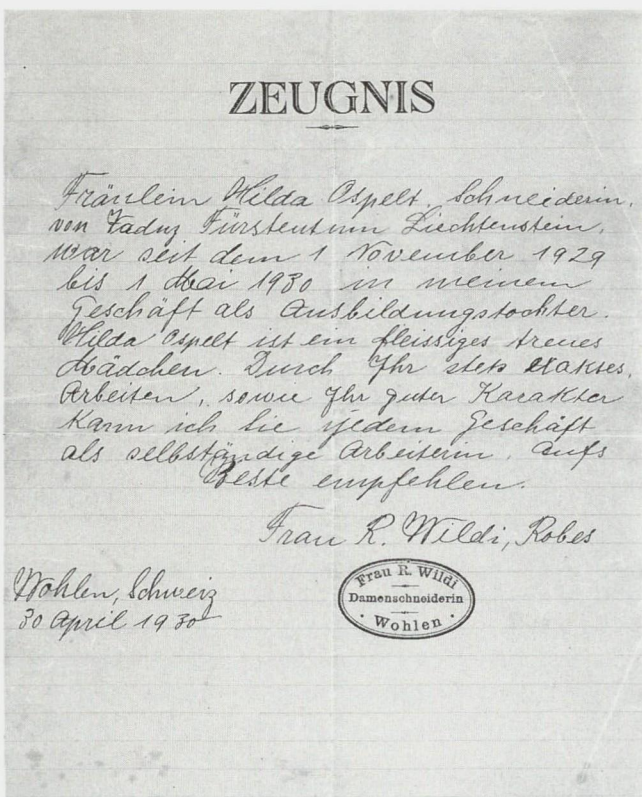 ZEUGNIS
Fräulein Hilda Ospelt, Schneiderin,
von Vaduz Fürstentum Liechtenstein,
war seit dem 1 November 1929
bis 1 Mai 1930 in meinem
Geschäft als Ausbildungstochter.
Hilda Ospelt ist ein fleissiges treues
Mädchen. Durch Ihr stets exaktes,
Arbeiten, sowie Ihr guter Karakter
kann ich Sie jedem Geschäft
als selbständige Arbeiterin, aufs
Beste empfehlen.
Frau R. Wildi, Robes
Wohlen, Schweiz
30 April 1930
Frau R. Wildi
Damenschneiderin
· Wohlen ·